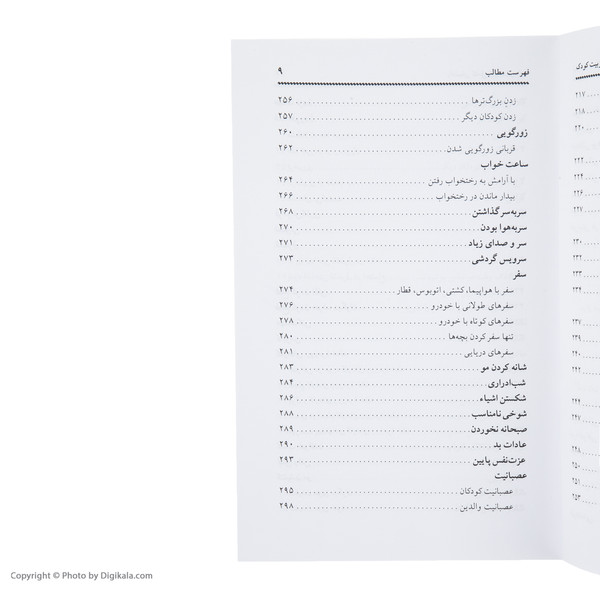 فهرست مطالب ۹
زدن بزرگ‌ترها ۲۵۶
زدن کودکان دیگر ۲۵۷
زورگویی ۲۶۰
قربانی زورگویی شدن ۲۶۲
ساعت خواب
با آرامش به رختخواب رفتن ۲۶۴
بیدار ماندن در رختخواب ۲۶۶
سربه‌سر گذاشتن ۲۶۸
سربه‌هوا بودن ۲۷۰
سر و صدای زیاد ۲۷۱
سرویس گردشی ۲۷۳
سفر
سفر با هواپیما، کشتی، اتوبوس، قطار ۲۷۴
سفرهای طولانی با خودرو ۲۷۶
سفرهای کوتاه با خودرو ۲۷۸
تنها سفر کردن بچه‌ها ۲۸۰
سفرهای دریایی ۲۸۱
شانه کردن مو ۲۸۳
شب‌ادراری ۲۸۴
شکستن اشیاء ۲۸۶
شوخی نامناسب ۲۸۸
صبحانه نخوردن ۲۸۹
عادات بد ۲۹۰
عزت‌نفس پایین ۲۹۳
عصبانیت
عصبانیت کودکان ۲۹۵
عصبانیت والدین ۲۹۸
۲۱۷
۲۱۸
۲۲۰
۲۲۲
۲۲۴
۲۲۶
۲۲۷
۲۳۰
۲۳۲
۲۳۳
۲۳۴
۲۳۷
۲۳۹
۲۴۰
۲۴۲
۲۴۴
۲۴۷
۲۴۸
۲۵۰
۲۵۱
۲۵۳
Copyright © Photo by Digikala.com